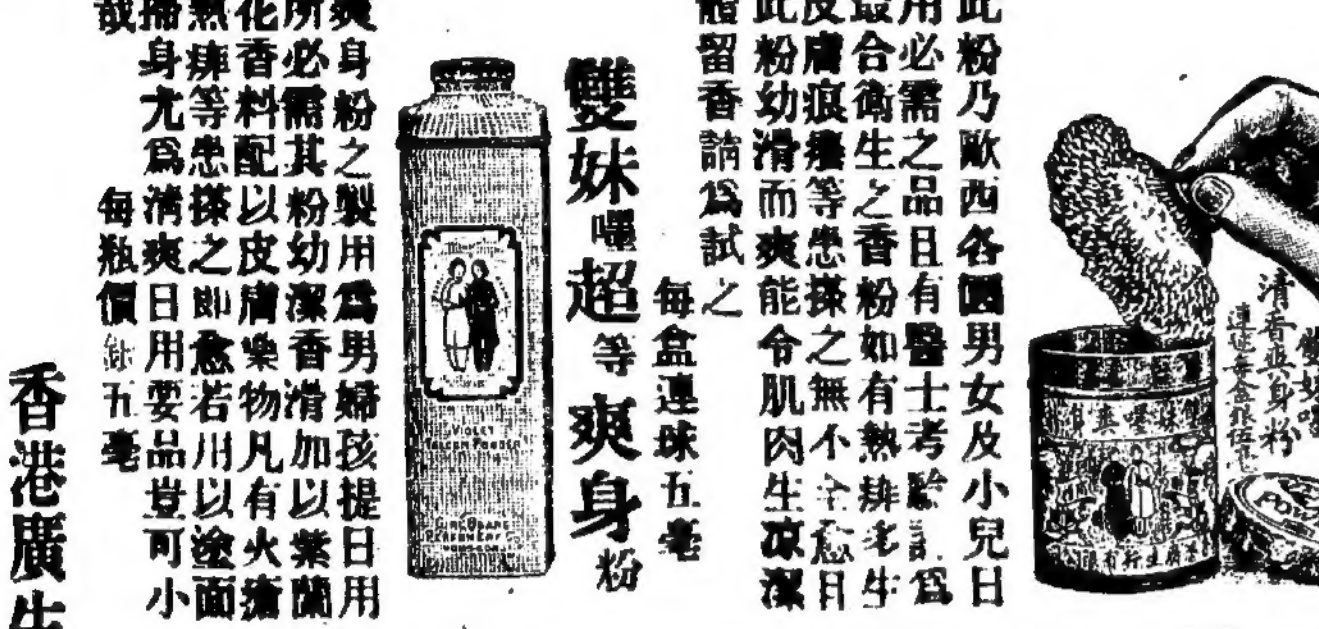 清香爽身粉
連毡每盒銀伍毫
此粉乃歐西各國男女及小兒日
用必需之品且有醫士考驗訂爲
最合衛生之香粉如有熱痱毛生
皮膚痕癢等患搽之無不全愈且
此粉幼滑而爽能令肌肉生凉潔
體留香請爲試之
每盒連球五毫
雙妹嚜超等爽身粉
VIOLET
TALCUM POWDER
爽身粉之製用爲男婦孩提日用
所必需其粉幼潔香滑加以紫蘭
化香料配以皮膚樂物凡有火瘡
熱痱等患搽之即愈若用以塗面
掃身尤爲清爽日用要品豈可小
哉
每瓶價銀五毫
香港廣生